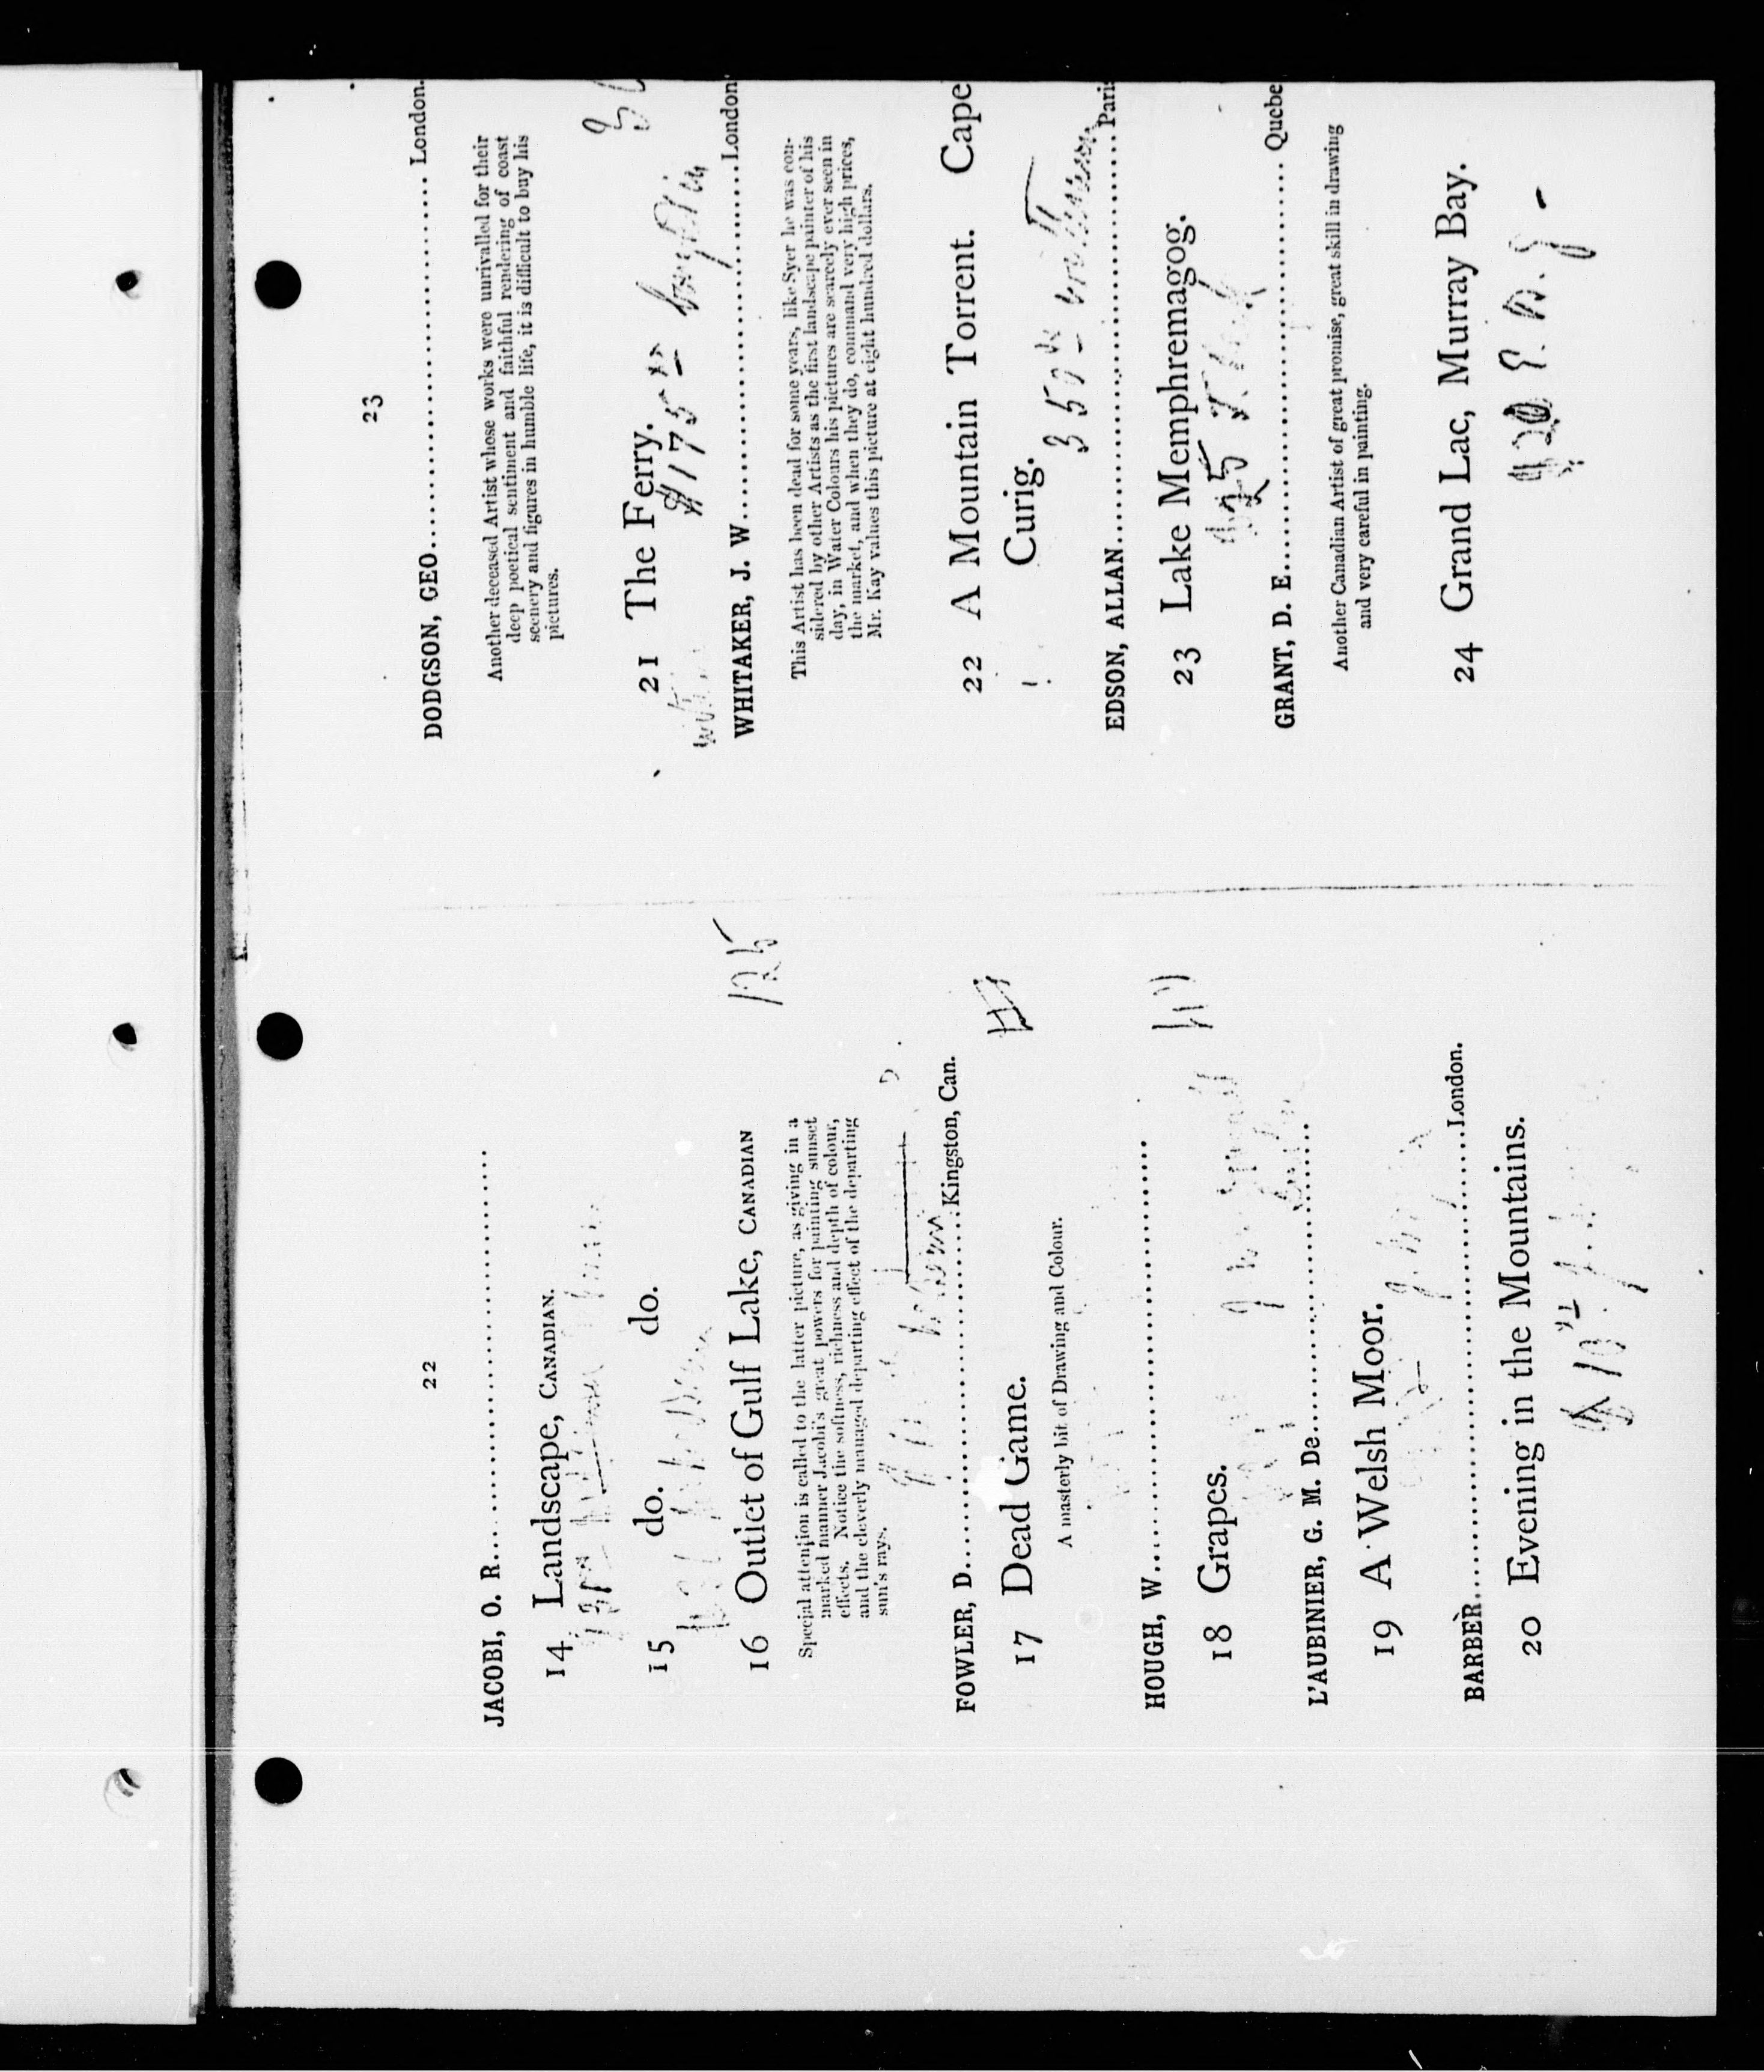 22
JACOBI, O. R.
14 Landscape, CANADIAN.
15 do. do.
16 Outlet of Gulf Lake, CANADIAN
125
Special attention is called to the latter picture, as giving in a
marked manner Jacobi's great powers for painting sunset
effects. Notice the softness, richness and depth of colour,
and the cleverly managed departing effect of the departing
sun's rays.
FOWLER, D. Kingston, Can.
17 Dead Game.
A masterly bit of Drawing and Colour.
HOUGH, W.
18 Grapes.
L'AUBINIER, G. M. De
19 A Welsh Moor.
BARBÈR London.
20 Evening in the Mountains.
23
DODGSON, GEO London.
Another deceased Artist whose works were unrivalled for their
deep poetical sentiment and faithful rendering of coast
scenery and figures in humble life, it is difficult to buy his
pictures.
21 The Ferry.
$175
WHITAKER, J. W. London
This Artist has been dead for some years, like Syer he was con-
sidered by other Artists as the first landscape painter of his
day, in Water Colours his pictures are scarcely ever seen in
the market, and when they do, command very high prices,
Mr. Kay values this picture at eight hundred dollars.
22 A Mountain Torrent. Cape
Curig.
350
EDSON, ALLAN Paris
23 Lake Memphremagog.
GRANT, D. E. Quebe
Another Canadian Artist of great promise, great skill in drawing
and very careful in painting.
24 Grand Lac, Murray Bay.